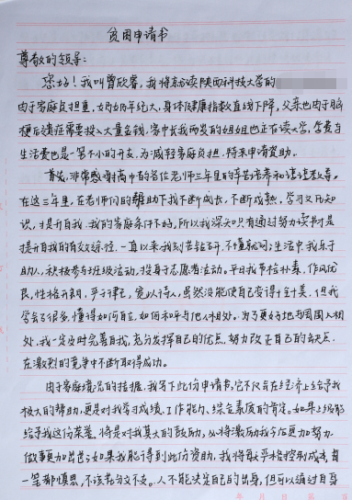 贫困申请书
尊敬的领导:
您好!我叫曾欣睿,我将就读陕西科技大学的
由于家庭负担重,奶奶年纪大,身体健康指数直线下降,父亲也由于脑
梗后遗症需要投入大量金钱,家中长我两岁的姐姐也正在读大学,学费与
生活费也是一笔不小的开支,为减轻家庭负担,特来申请资助。
首先,非常感谢高中的各位老师三年里的辛苦培养和谆谆教导。
在这三年里,在老师们的帮助下我不断成长,不断成熟,学习文化知
识,提升自我。我的家庭条件不好,所以我深知只有通过努力读书才是
提升自我的有效途径,一直以来我刻苦钻研,不懂就问;生活中我乐于
助人,积极参与班级活动,投身于志愿者活动。平日我节俭朴素,作风优
良,性格开朗,严于律己,宽以待人,虽然没能使自己变得十全十美,但我
学会了很多,懂得如何自立,如何和平与他人相处。为了更好地与周围人相
处,我一定及时完善自我,充分发挥自己的优点,努力改正自己的缺点,
在激烈的竞争中不断取得成功。
由于家庭情况的拮据,我写下此份申请书,它不仅在经济上给予我
极大的帮助,更是对我学习成绩、工作能力、综合素质的肯定。如果上级能
给予我这份荣誉,将是对我莫大的鼓励,必将激励我今后更加努力
做事更加出色;如果我能得到此份资助,我将严格控制成本,每
一笔都慎思,不该花分文不支。人不能决定自己的出身,但可以通过自身